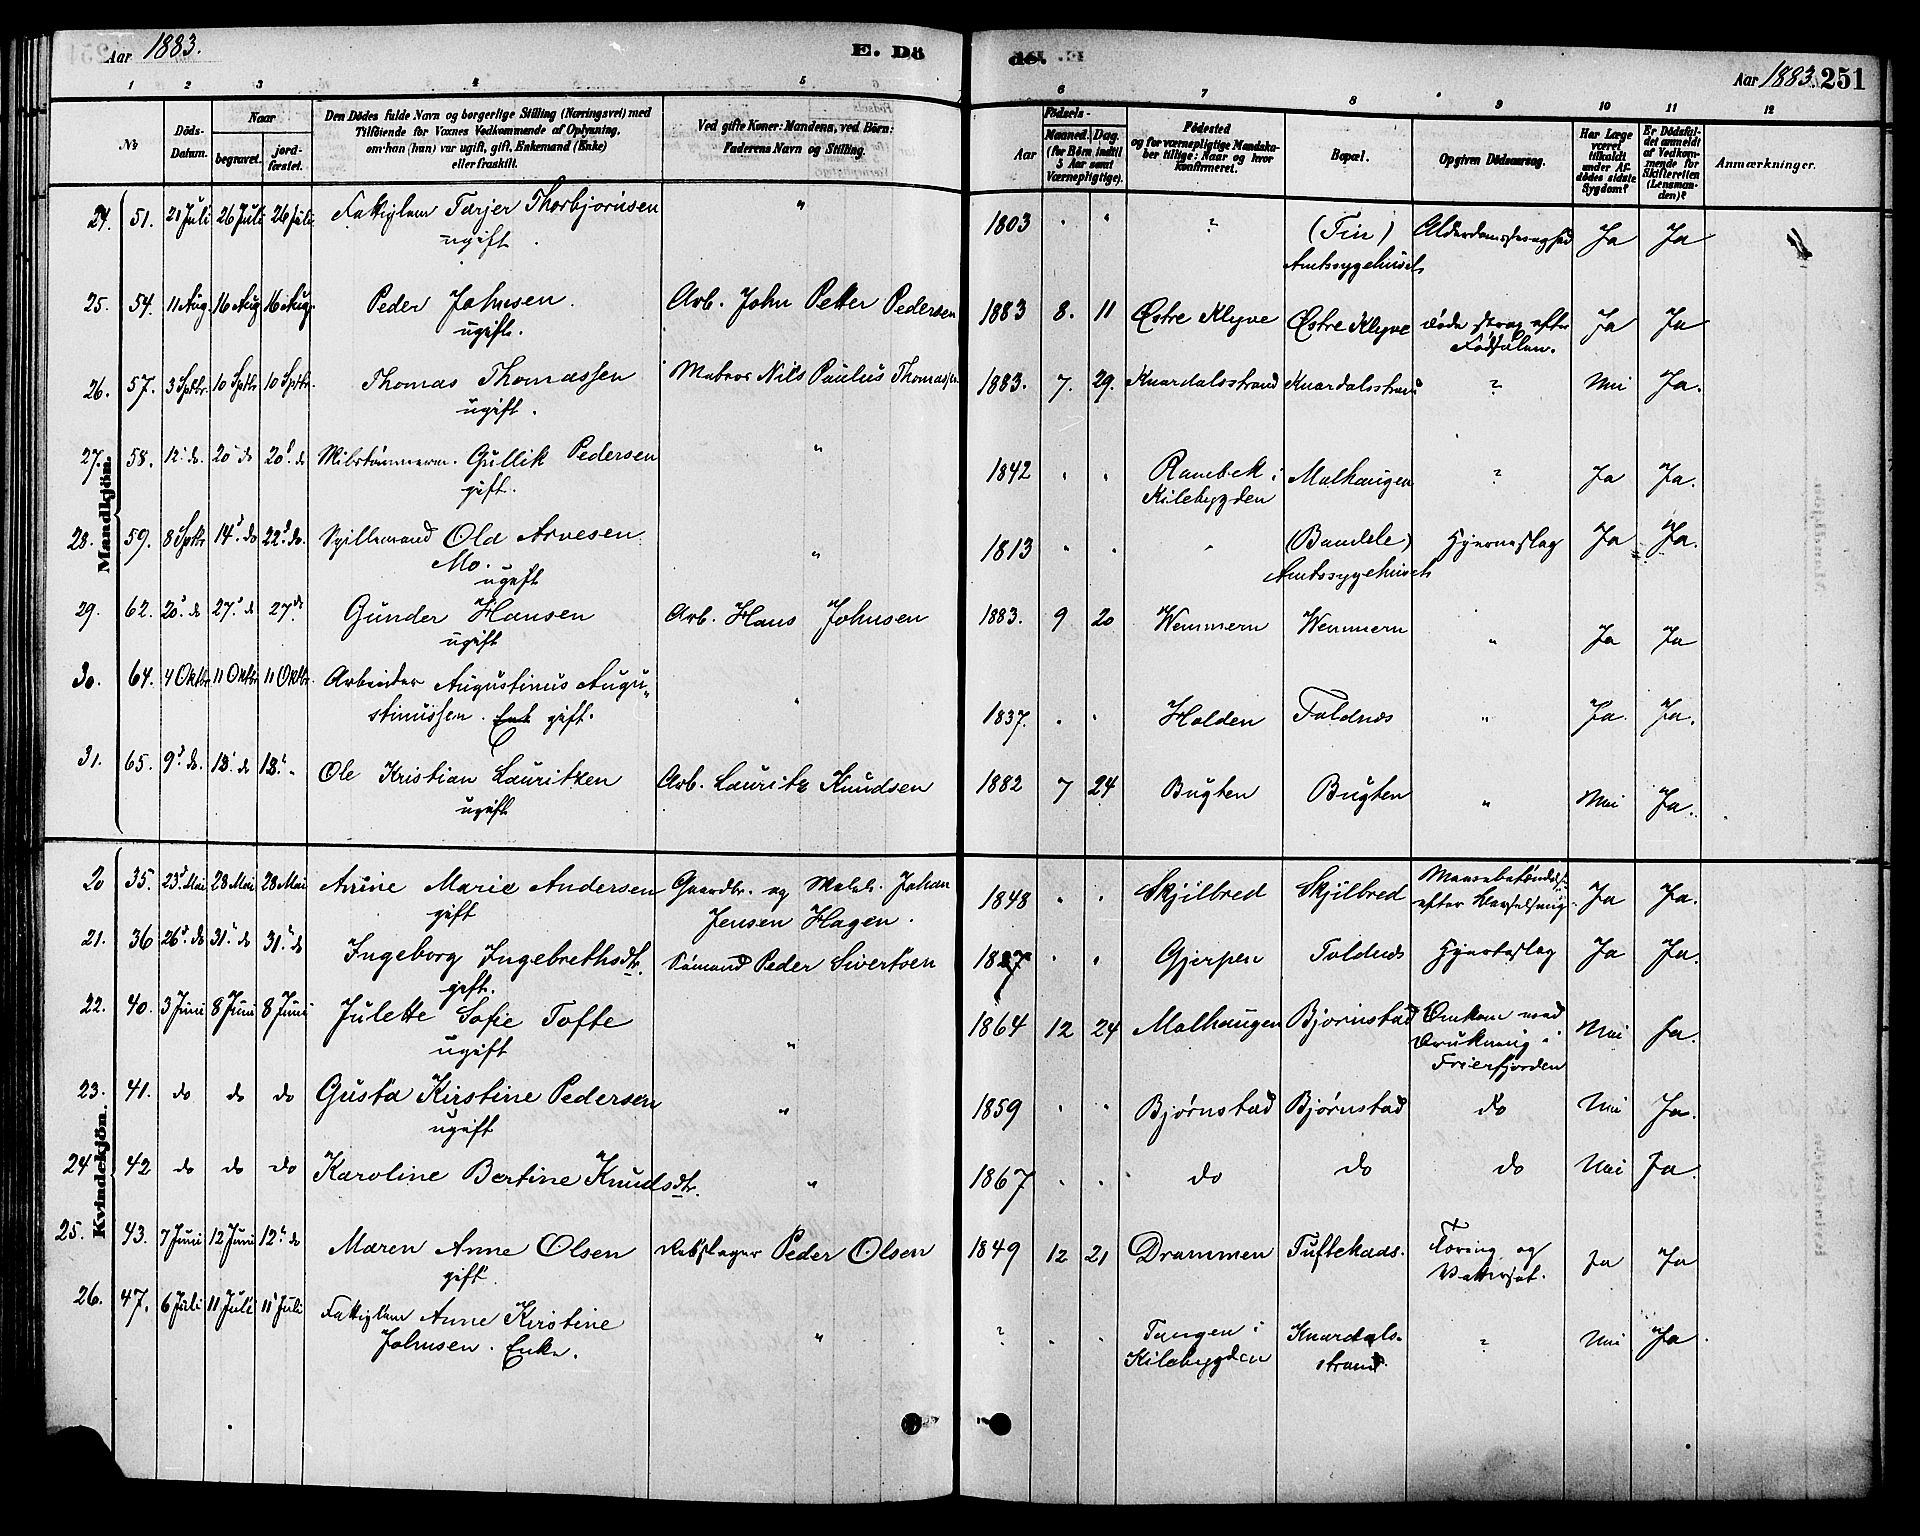 Aar 1883. E. Dö de. Aar 1883. 251
1 2 3 4 5 6 7 8 9 10 11 12
No Döds-Datum. Naar begravet. jordfæstet. Den Dödes fulde Navn og borgerlige Stilling (Næringsvei) med Tilföiende for Voxnes Vedkommende af Oplysning, om han (hun) var ugift, gift, Enkemand (Enke) eller fraskilt. Ved gifte Koner: Mandens, ved Börn: Faderens Navn og Stilling. Födsels- Aar Maaned. Dag. (for Börn indtil 5 Aar samt Værnepligtige). Födested og for værnepligtige Mandskaber tillige: Naar og hvor konfirmeret. Bopæl. Opgiven Dödsaarsag. Har Læge været tilkaldt under Afdödes sidste Sygdom? Er Dödsfaldet anmeldt af Vedkommende for Skifteretten (Lensmanden)? Anmærkninger.
Mandkjön.
24. 51. 21 Juli 26 Juli 26 Juli Fattiglem Tarjer Thorbjørnsen " 1803 " " ? (Tin) Alderdomssvaghed Ja Ja
ugift. Amtssygehuset
25. 54. 11 Aug. 16 Aug 16 Aug. Peder Johnsen. Arb. John Petter Pedersen 1883 8. 11 Østre Klyve Østre Klyve døde strax efter Ja Ja
ugift. Fødselen.
26. 57. 3 Sptbr 10 Sptbr 10 Sptbr. Thomas Thomassen Matros Nils Paulus Thomassen 1883. 7. 29. Knardalsstrand Knardalsstrand ? Nei Ja.
ugift.
27. 58. 12 do. 20 do 20 do Gullik Pedersen " 1842 " " Rambek i Malhaugen ? Ja Ja.
gift. Kilebygden
28. 59. 8 Sptbr 14 do 22 do. Spillemand Ola Arvesen " 1813 " " " (Bandele) Hjerneslag Ja Ja.
Mo. ugift Amtssygehuset
29. 62. 20 do 27 do 27 do Gunder Hansen Arb. Hans Johnsen 1883. 9 20 Wemmern Wemmern " Ja Ja
ugift
30. 64. 4 Oktbr 11 Oktbr 11 Oktbr. Arbeider Augustinus Augu-
stinussen. Enk gift. " 1837. " " Holden Foldnes " Ja. Ja.
31. 65. 9 do. 13 do 13 " Ole Kristian Lauritzen Arb. Lauritz Knudsen 1882 7 24 Bugten Bugten " Nei Ja.
ugift
Kvindekjön.
20 35. 23 Mai 28 Mai 28 Mai Anine Marie Andersen Gaardbr. og Johan 1848 " " Skjilbred Skjilbred Ja Ja.
gift Jensen Hagen. efter Barselseng.
21. 36 26 do 31 do 31 do Ingeborg Ingebrethsdtr. Sømand Peder Sivertsen 1827 " " Gjerpen Foldnes Hjerteslag Ja Ja.
gift.
22. 40. 3 Juni 8 Juni 8 Juni Julette Sofie Tofte " 1864 12 24 Malhaugen Bjørnstad Omkom ved Nei Ja.
ugift Drukning i
Frierfjorden
23. 41. do do do Gusta Kirstine Pedersen " 1859 " " Bjørnstad Bjørnstad do Nei Ja.
ugift
24 42 do do do Karoline Bertine Knudsdtr. " 1867 " " do do do Nei Ja.
25. 43. 7 Juni 12 Juni 12 do Maren Anne Olsen Rebslager Peder Olsen 1849 12 21 Drammen Tuftekaas. Tæring og Ja Ja
gift. Vattersot.
26. 47. 6 Juli 11 Juli 11 Juli Fattiglem Anne Kirstine " ? " " Tangen i Knardals- ? Nei Ja.
Johnsen. Enke. Kilebygden strand.